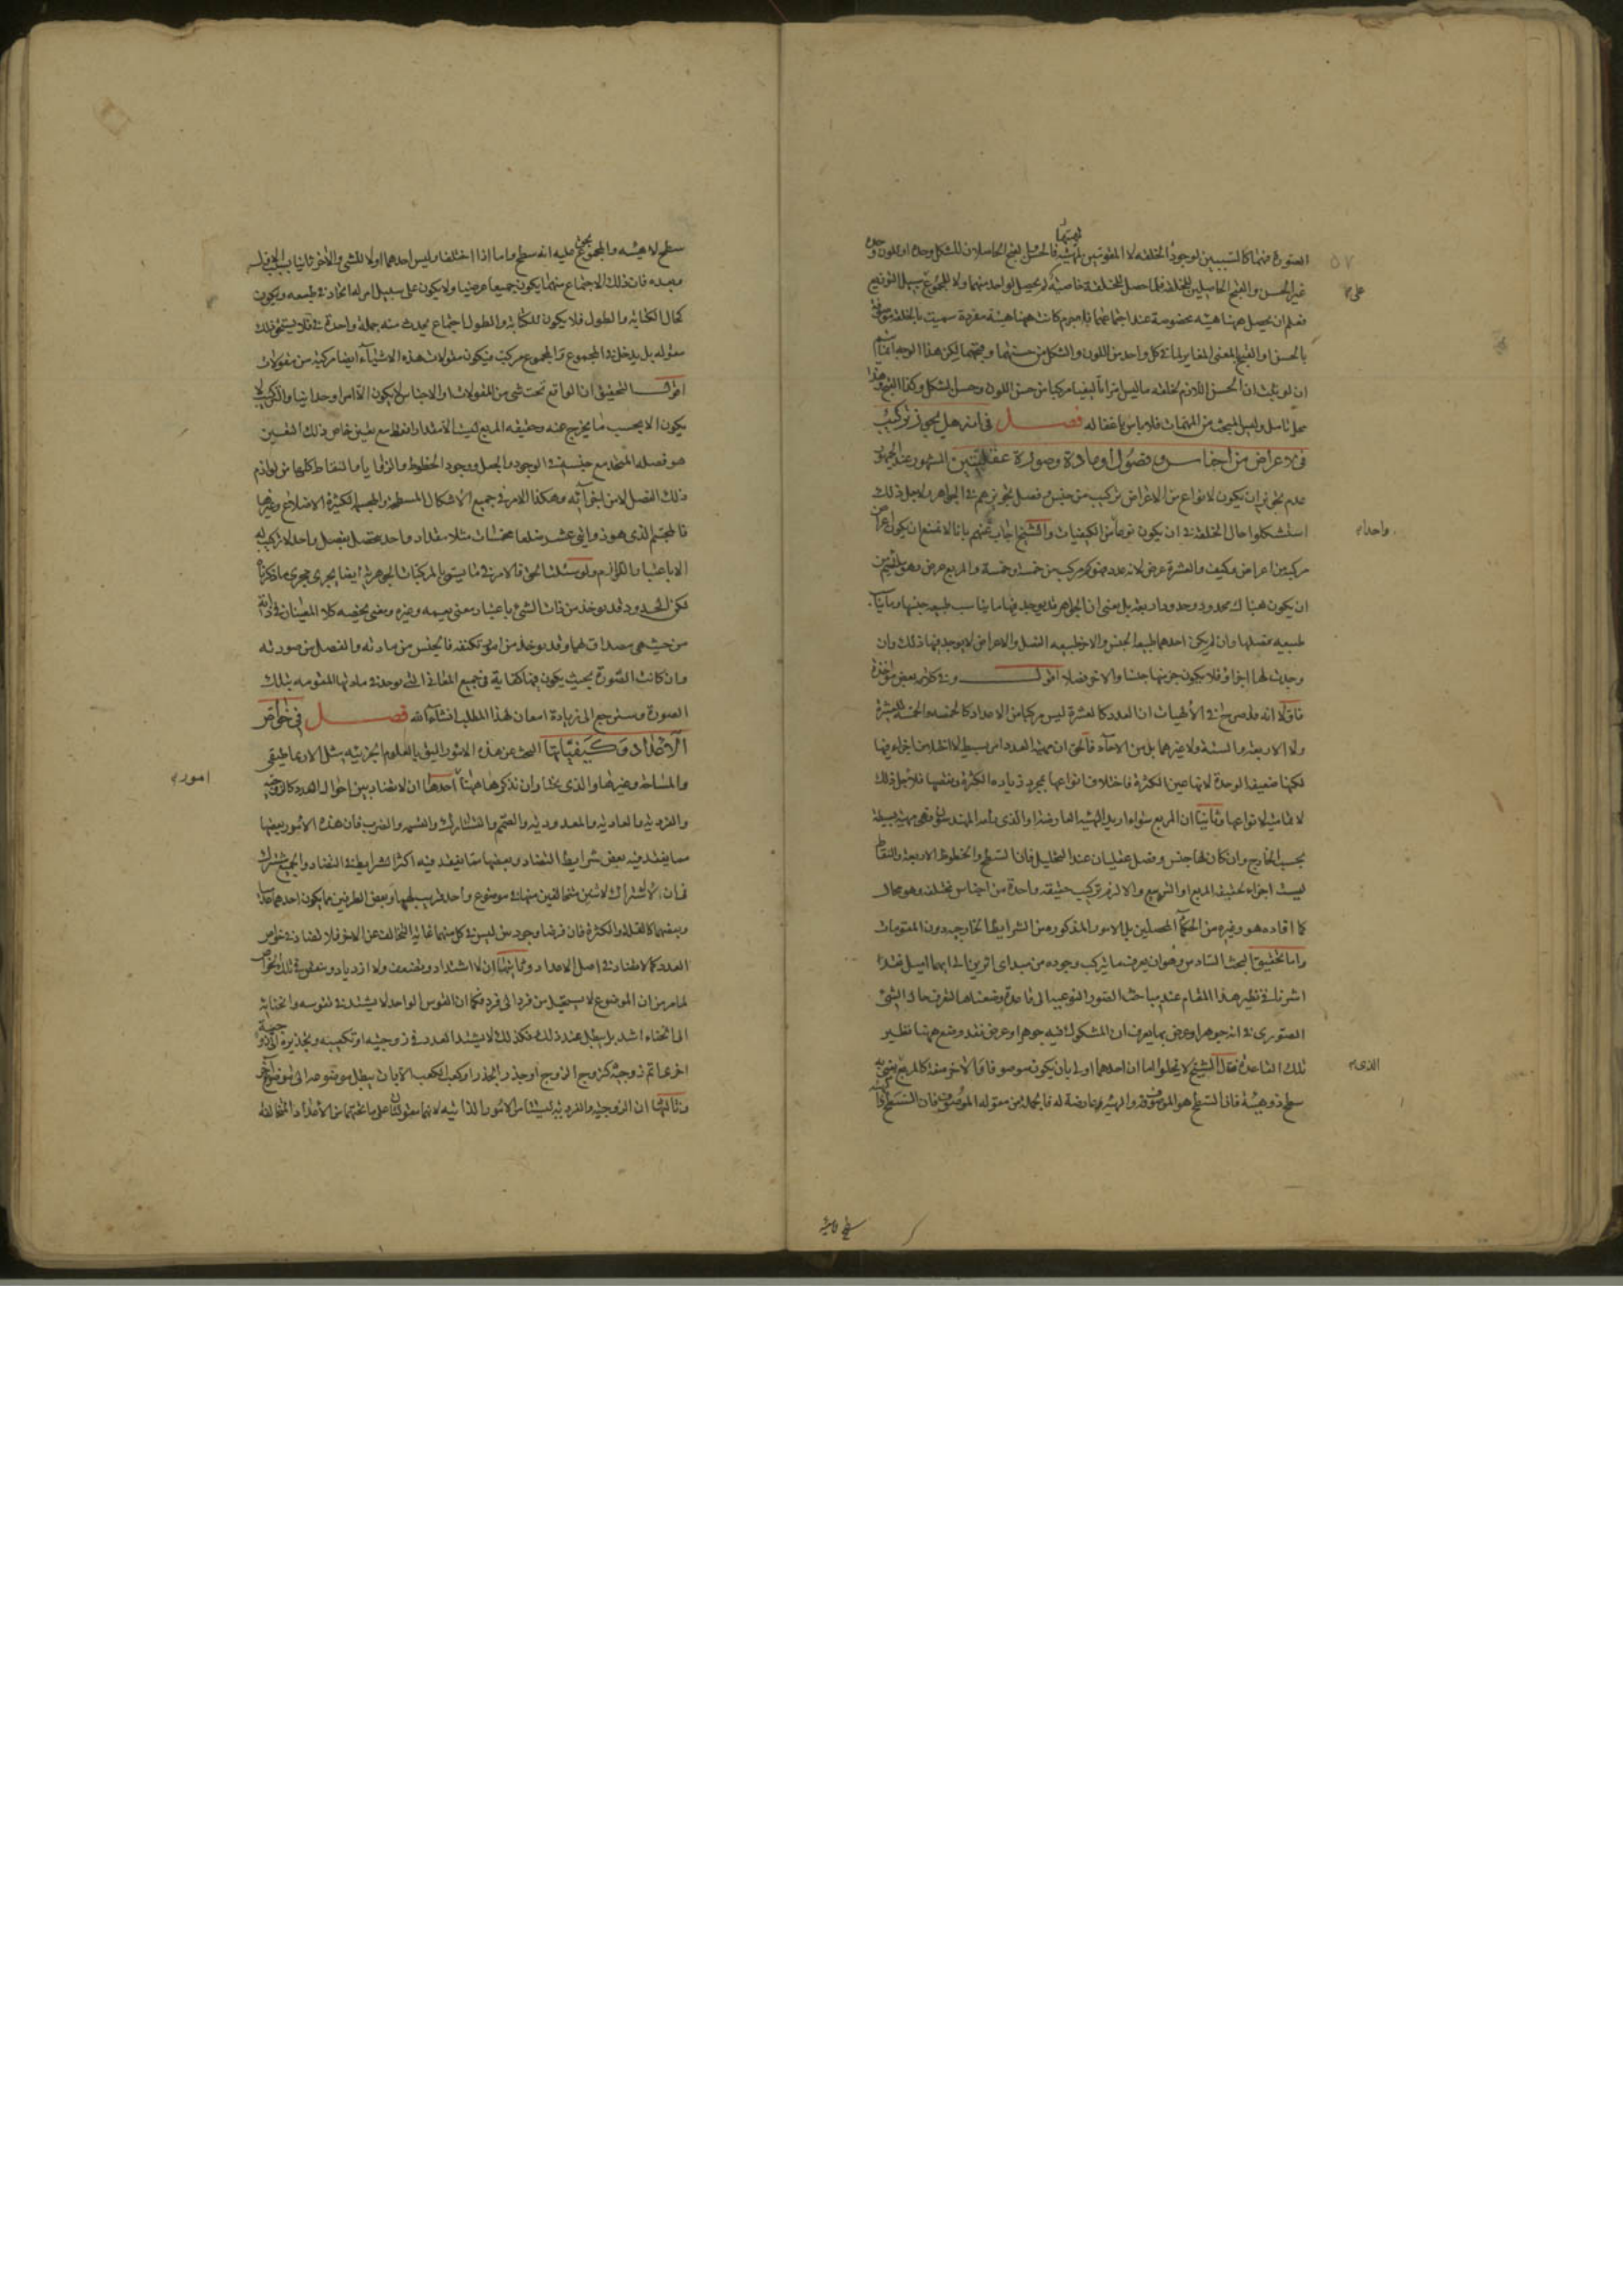 الصورة فهما كالسببين لوجود الخلقة لا المقومين لمهيتها فالحسن والقبح الحاصلان للشكل وحده او للون وحده
غير الحسن والقبح الحاصلين للخلقة فلما حصل للخلقة خاصية لم يحصل لواحد منهما ولا للمجموع سبيل التوزيع
فعلم ان يحصل ههنا هيئة مخصوصة عند اجتماعهما فلا جرم كانت ههنا هيئة مفردة سميت بالخلقة
بالحسن او القبح المعنى المغاير لما في كل واحد من اللون والشكل من حسنهما وقبحهما لكن هذا الوجه انما يتم
ان لو ثبت ان الحسن اللازم للخلقة ما ليس امرا تأليفيا مركبا من حسن اللون وحسن الشكل وكذا القبح وهذا
محل تامل وليس المبحث من المهمات فلا باس باغفاله فصل في انه هل يجوز تركيب
في الاعراض من اجناس وفصول او مادة وصورة عقليتين المشهور عند الجمهور
عدم تجويز ان يكون لانواع من الاعراض تركيب من جنس وفصل تجويزهم في الجواهر ولاجل ذلك
استشكلوا حال الخلقة في ان يكون نوعا من الكيفيات والشيخ اجاب عنهم بانا لا نمنع ان يكون اعراض
مركبة من اعراض وكيف والعشرة عرض لانه عدد وهو مركب من خمسة وخمسة والمربع عرض وهو يلتئم من
ان يكون هناك محدود وحدود اربعة بل معنى ان الجواهر قد يوجد فيها ما يناسب طبيعة جنسها وما يناسب
طبيعة فصلها وان لم يكن احدهما طبيعة الجنس والاخر طبيعة الفصل والاعراض لا يوجد فيها ذلك وان
وجدت لها اجزاء فلا يكون جزء منها جنسا والاخر فصلا اقول وفي كلامه بعض مواخذة
فاولا انه قد صرح في الالهيات ان العدد كالعشرة ليس مركبا من الاعداد كالخمسة والخمسة للعشرة
ولا الاربعة والستة ولا غيرهما بل من الاحاد فالحق ان مهية العدد امر بسيط لا اختلاف اجزاء فيها
لكنها ضعيفة الوحدة لانها عين الكثرة فاختلاف انواعها بمجرد زيادة الكثرة ونقصها فلاجل ذلك
لا نهاية لانواعها وثانيا ان المربع سواء اريد الهيئة العارضة او الذي يراه المهندسون فهي مهية بسيطة
بحسب الخارج وان كان لها جنس وفصل عقليان عند التحليل فان السطح والخطوط الاربعة والنقاط
ليست اجزاء لحقيقة المربع او التربيع والا لزم تركيب حقيقة واحدة من اجناس مختلفة وهو محال
كما افاده هو وغيره من الحكماء المحصلين بل الامور المذكورة من الشرايط الخارجية دون المقومات
واما تحقيق البحث السادس وهو ان يعرف ما يتركب وجوده من مبداي اثرين الى ايهما اميل فقد
اشرنا في نظير هذا المقام عند مباحث الصور النوعية الى قاعدة وضعناها لتعرف حال الشيء
الصوري في انه جوهر او عرض بما يعرف ان المشكوك فيه جوهر او عرض فقد وضع ههنا نظير
تلك القاعدة فقال الشيخ لا يخلوا اما ان احدهما اولى بان يكون موصوفا والاخر صفة كالمربع يعني به
سطح ذو هيئة فان السطح هو الموصوف والهيئة عارضة له فالجملة من مقولة الموصوف فان السطح
على
واحد
الذي
سطح لا هيئة والمجموع يحمل عليه انه سطح واما اذا اختلفا وليس احدهما اولا للشيء والاخر ثانيا بسببه
وبعده فان ذلك الاجتماع منهما يكون جميعا عرضيا ولا يكون على سبيل امر له اتحاد في طبيعة ويكون
كحال الكتابة والطول فلا يكون للكتابة والطول اجتماع يحدث منه جملة واحدة فلا يستحق ذلك
مقولة بل يدخل والمجموع مركب فيكون مقولات هذه الاشياء ايضا مركبة من مقولات
اقول التحقيق ان الواقع تحت شيء من المقولات او الاجناس لا يكون الا امرا وحدانيا والتركيب لا
يكون الا بحسب ما يخرج عنه وحقيقة المربع ليست الا مقدارا فقط مع تعين خاص ذلك التعين
هو فصله المتحد مع جنسه في الوجود والجعل ووجود الخطوط والزوايا والنقاط كلها من لوازم
ذلك الفصل لا من اجزائه وهكذا الامر في جميع الاشكال المسطحة والمجسمة الكثيرة الاضلاع وغيرها
فالمجسم الذي هو ذو اثني عشر ضلعا مخمسات مثلا مقدار واحد متصل بفصل واحد لا تركيب له
الا باعتبار اللوازم ولو سئلت الحق فالامر في ما يسمى بالمركبات الجوهرية ايضا يجري مجرى ما ذكرناه
لكن الحدود قد يوخذ من ذات الشيء باعتبار معنى يعمه وغيره ومعنى يخصه كلا المعنيان في ذاته
من حيث هي مصداق لهما وقد يوخذ من امور تكتنفه فالجنس من مادته والفصل من صورته
وان كانت الصورة بحيث يكون فيها كفاية في جميع المعاني التي توجد في مادتها المتقومة بتلك
الصورة وسنرجع الى زيادة امعان لهذا المطلب انشاء الله فصل في خواص
الاعداد وكيفياتها البحث عن هذه الامور اليق بالعلوم الجزئية مثل الارثماطيقي
والمساحة وغيرها والذي عسى وان نذكرها ههنا احدها ان لا تضاد بين احوال العدد كالزوجية
والفردية والعادية والمعدودية والصمم والتشارك والقسمة والضرب فان هذه الامور بعضها
مما يفقد فيه بعض شرايط التضاد وبعضها مما يفقد فيه اكثر الشرايط في التضاد والجميع مشترك
في ان لا اشتراك لاثنين متخالفين منها في موضوع واحد قريب لهما وبعض الطرفين مما يكون احدهما عدميا
وبعضهما كالقلة والكثرة فان فرضا وجوديين ليس في كل منهما غاية التخالف عن الاخر فلا تضاد في خواص
العدد كما لا تضاد في اصل الاعداد وثانيها ان لا اشتداد وتضعف ولا ازدياد وتنقص في تلك الخواص
لما مر من ان الموضوع لا يستحيل من فرد الى فرد فكما ان القوس الواحد لا يشتد في تقوسه وانحنائه
الى انحناء اشد بل يبطل عند ذلك فكذلك لا يشتد العدد في زوجيته او تكعيبه وتجذيره الى زوجية
اخرى اتم زوجية كزوج الزوج او جذر الجذر او كعب الكعب الا بان يبطل موضوعه الى موضوع اخر
وثالثها ان الزوجية والفردية ليستا من الامور الذاتية لانهما مقولتان على ما تحتهما من الاعداد المتخالفة
امور
سطح لا هيئة